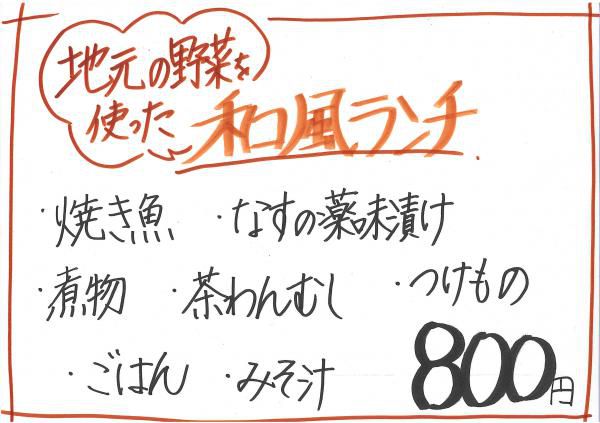 地元の野菜を
使った
和風ランチ
・焼き魚 ・なすの薬味漬け
・煮物 ・茶わんむし ・つけもの
・ごはん ・みそ汁
800円